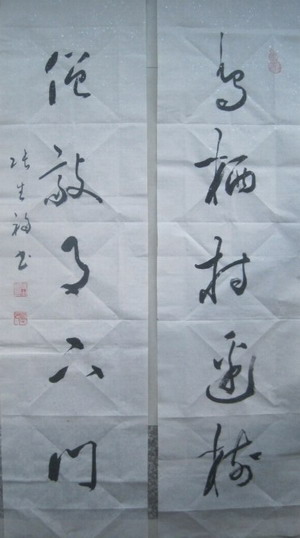 鸟栖村边树
僧敲月下门
张生福书